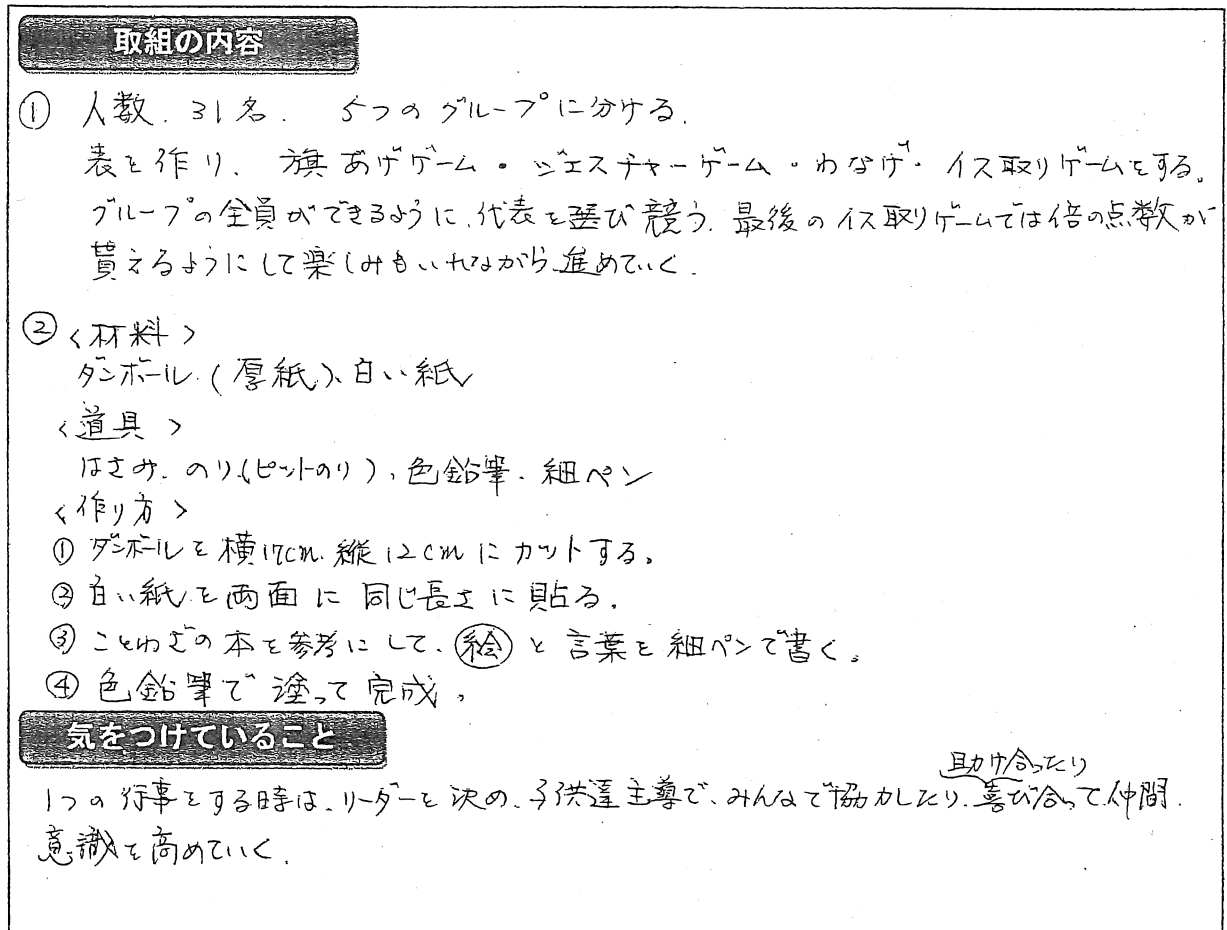 取組の内容
① 人数. 31名. 5つのグループに分ける.
表を作り、旗あげゲーム・ジェスチャーゲーム・わなげ・イス取りゲームをする。
グループの全員ができるように、代表を選び競う. 最後のイス取りゲームでは倍の点数が
貰えるようにして楽しみもいれながら進めていく.
② <材料>
ダンボール(厚紙)、白い紙
<道具>
はさみ、のり(ピットのり)、色鉛筆、細ペン
<作り方>
① ダンボールを横17cm.縦12cmにカットする。
② 白い紙を両面に同じ長さに貼る.
③ ことわざの本を参考にして、絵と言葉を細ペンで書く。
④ 色鉛筆で塗って完成。
気をつけていること
助け合ったり
1つの行事をする時は、リーダーを決め、子供達主導で、みんなで協力したり、喜び合って仲間
意識を高めていく.